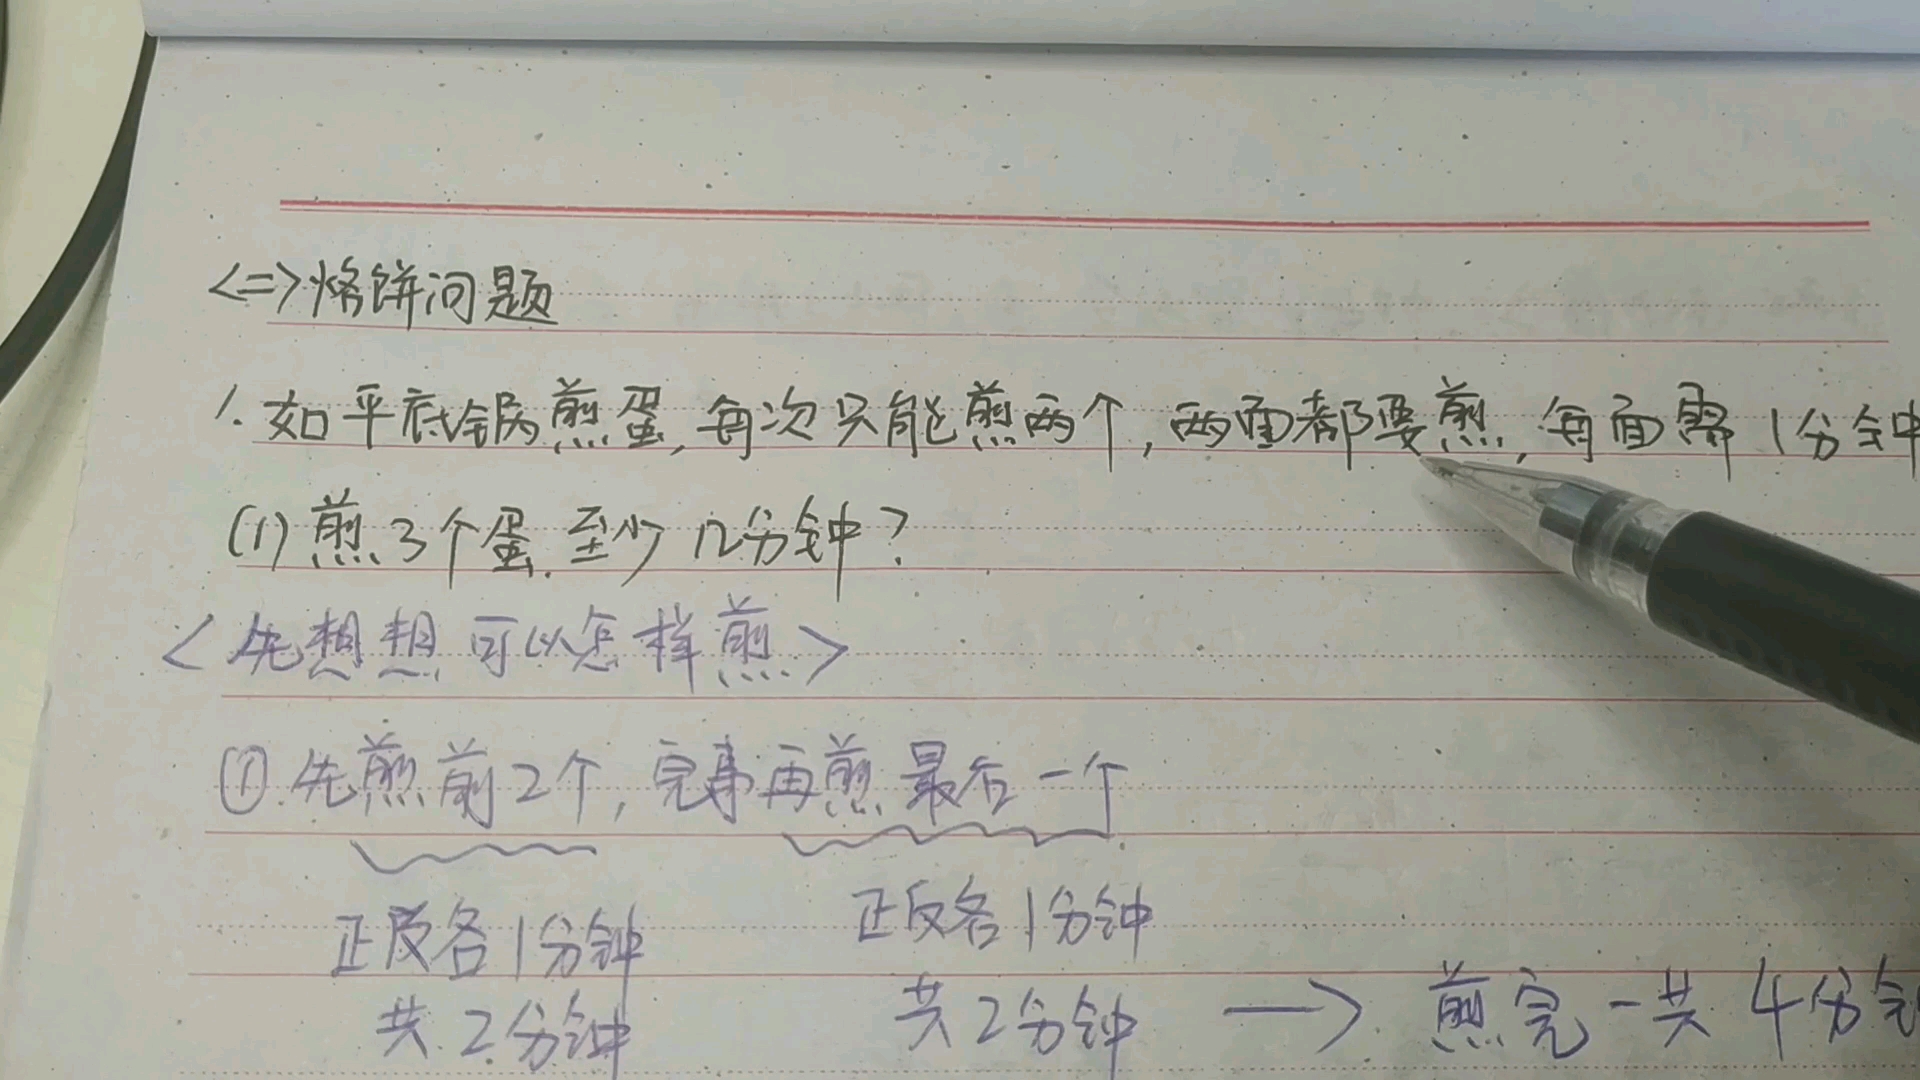 <二>烙饼问题
1.如平底锅煎蛋,每次只能煎两个,两面都要煎,每面需1分钟
(1)煎3个蛋.至少几分钟?
<先想想可以怎样煎>
①.先煎前2个,完事再煎最后一个
正反各1分钟 正反各1分钟
共2分钟 共2分钟 → 煎完一共4分钟